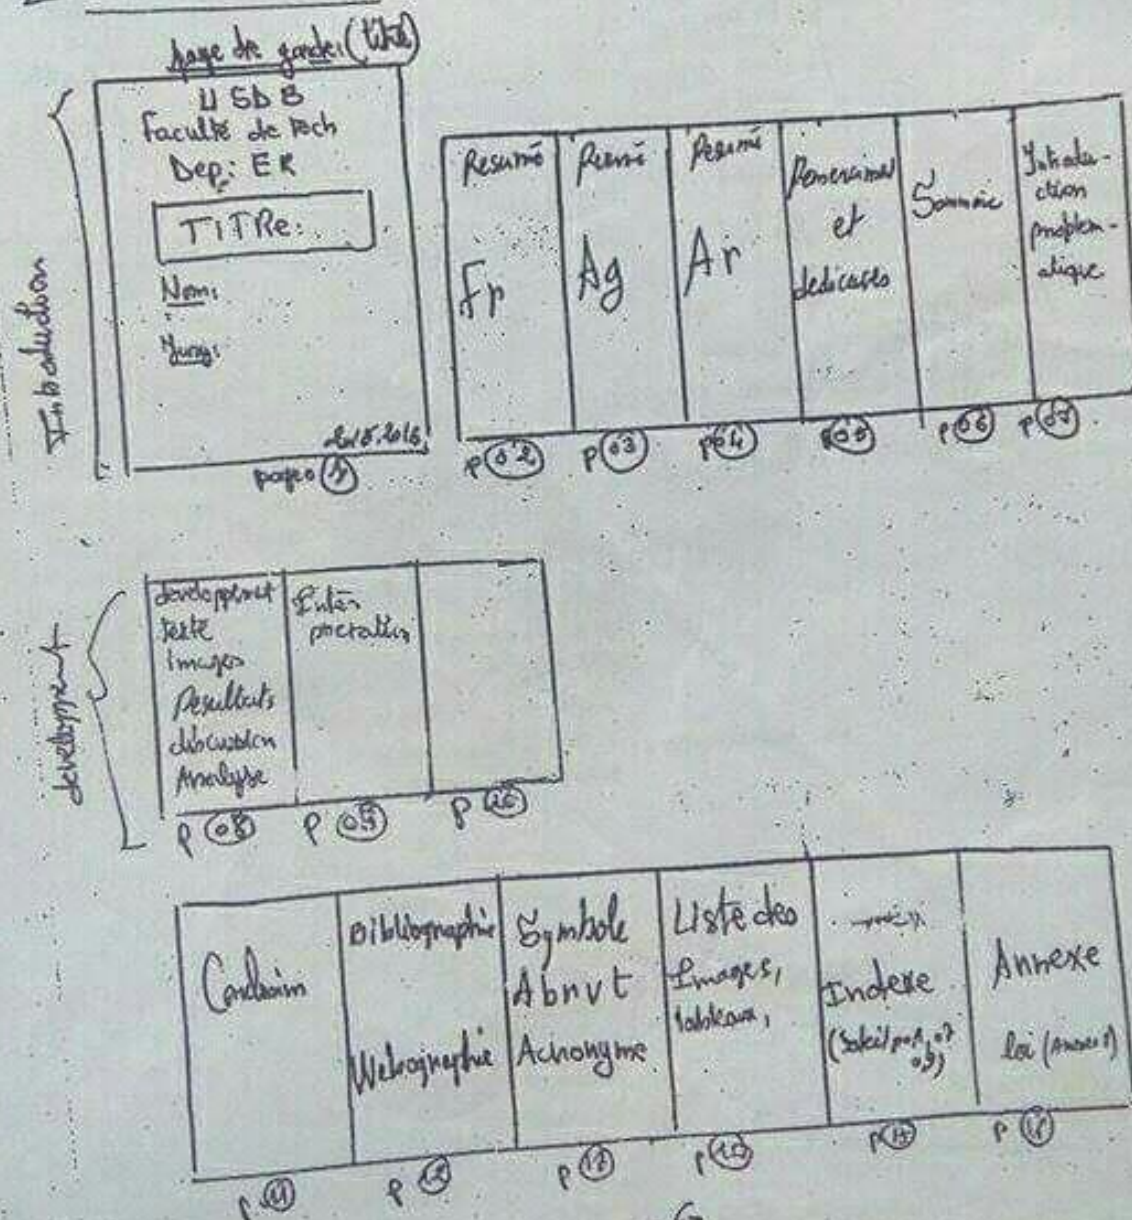 page de garde: (titre)
USDB
Faculté de tech
Dep: ER
TITRe:
Nom:
Jury:
page 1
Introduction
Resumé
Fr
p 02
Resumé
Ag
p 03
Resumé
Ar
p 04
et
dedicaces
p 05
Sommaire
p 06
Introdu-
ction
problem-
atique
p 07
developpment
developpment
texte
Images
Resultats
discussion
Analyse
p 08
Inter
pretation
p 09
p 10
Conclusion
p 11
Bibliographie
Webographie
p 12
Symbole
Abrvt
Achonyme
p 13
Liste des
Images,
tableaux,
Indexe
Annexe
loi (Annexe 1)